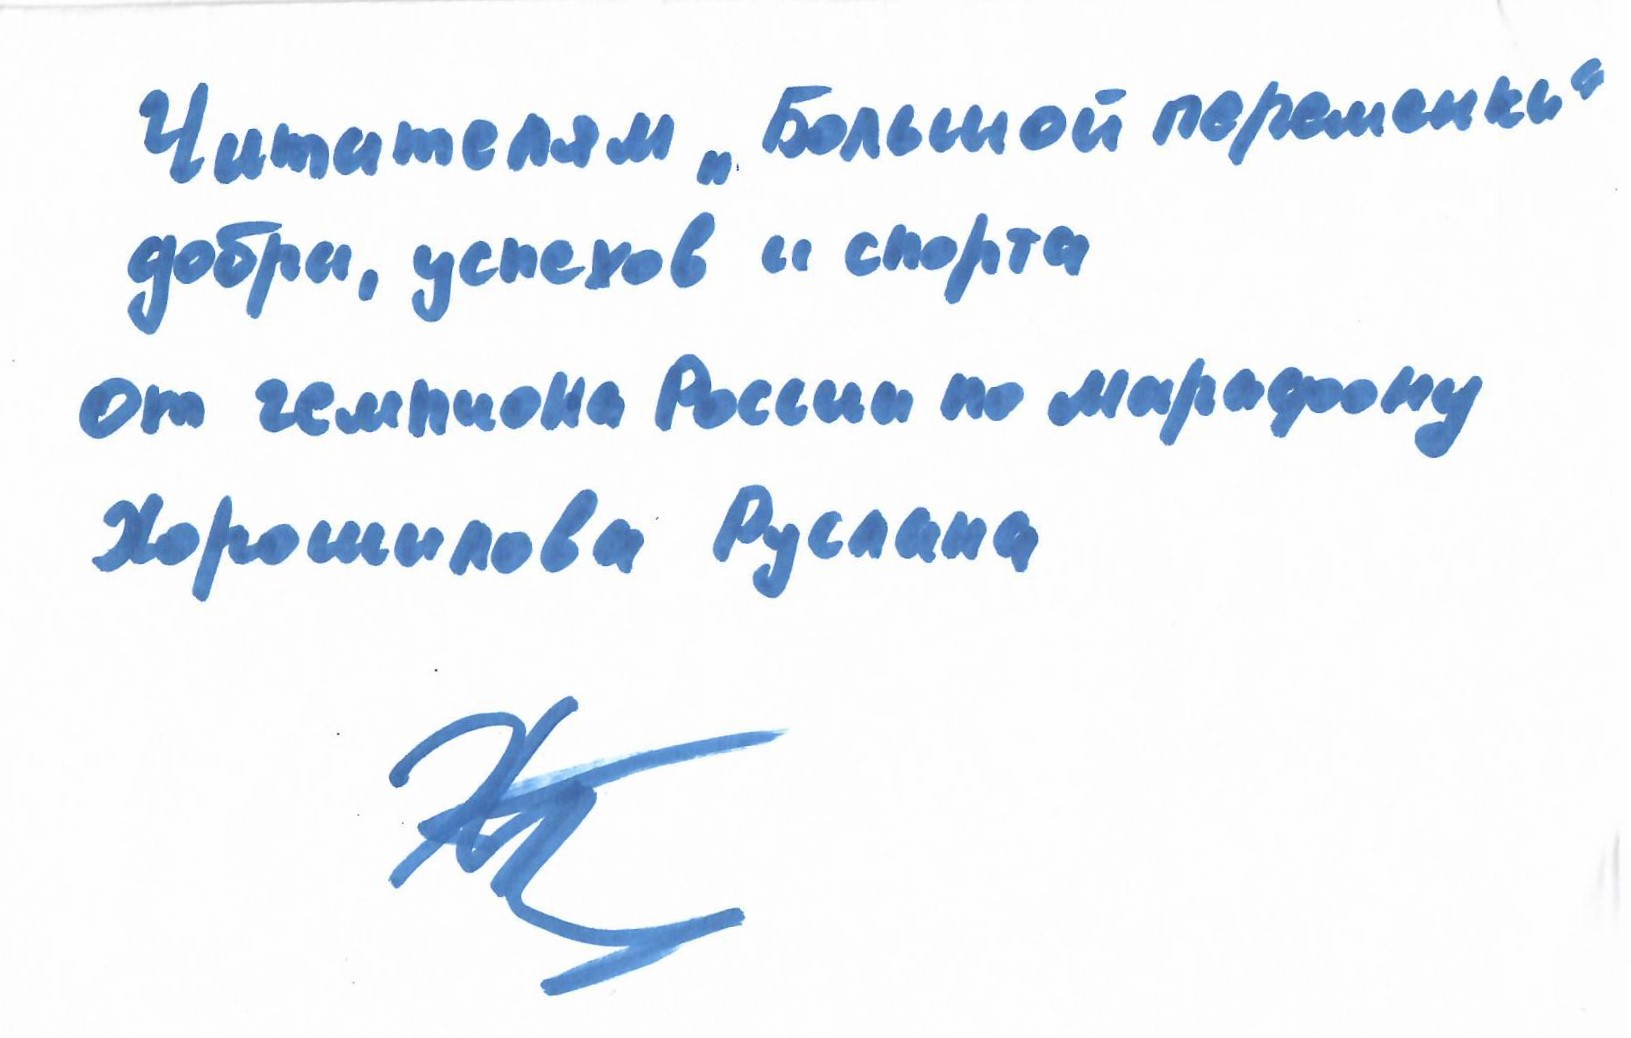 Читателям „Большой переменки“
добра, успехов и спорта
От чемпиона России по марафону
Хорошилова Руслана